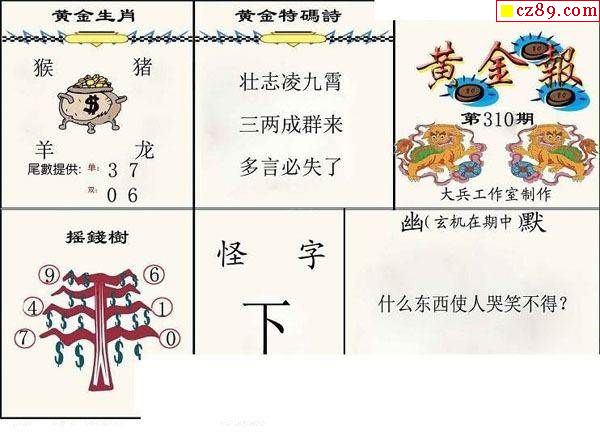 cz89.com
黄金生肖
猴 猪
羊 龙
尾數提供: 单: 3 7
双: 0 6
黄金特碼詩
壮志凌九霄
三两成群来
多言必失了
黄金報
第310期
大兵工作室制作
摇錢樹
9 6
4 1
7 0
怪 字
下
幽(玄机在期中)默
什么东西使人哭笑不得?